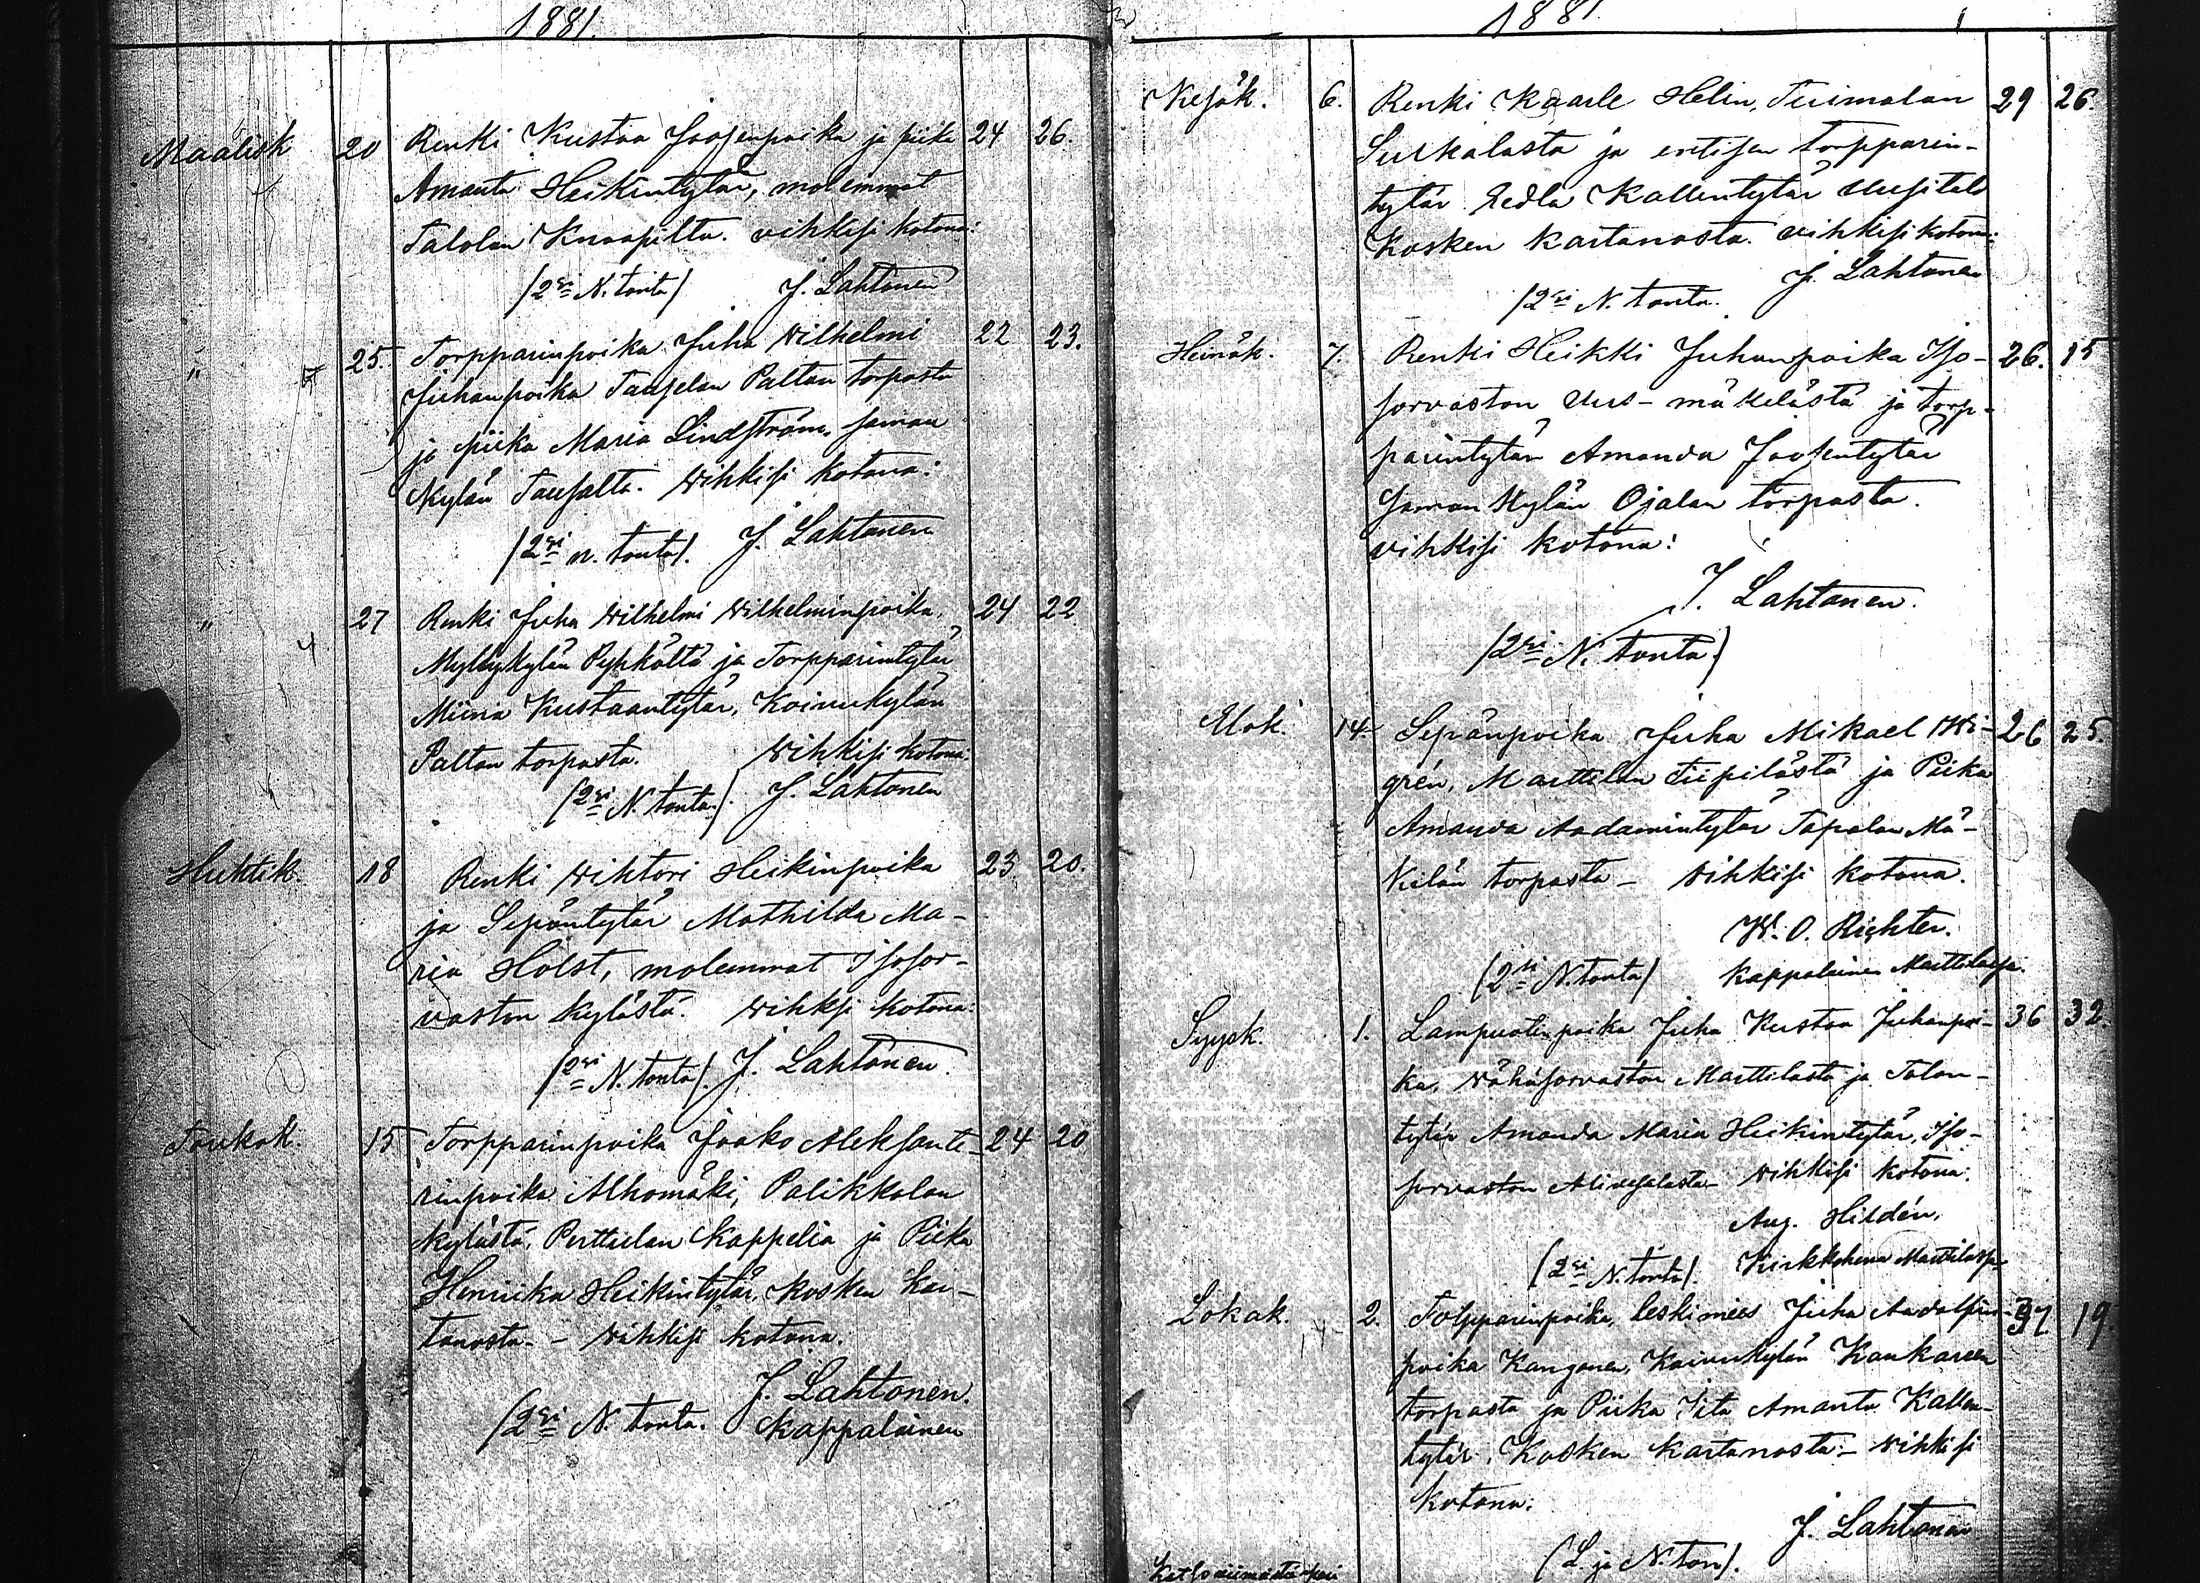 1881.
Maalisk 20 Renki Kustaa Joosenpoika ja piika 24 26.
Amanta Heikintytär, molemmat
Talolan Knaapilta. vihkisi kotona:
/2si N. tonta/ J. Lahtonen
" 25. Torpparinpoika Juha Wilhelmi 22 23.
Juhanpoika Tauselan Paltan torpasta
ja piika Maria Lindström, saman
kylän Tausalta. Wihkisi kotona:
/2si n. tonta/. J. Lahtonen
" 27 Renki Juha Wilhelmi Wilhelminpoika, 24 22
Myllykylän Pyhköltä ja Torpparintytär
Miina Kustaantytär, Koivukylän
Paltan torpasta. Wihkisi kotona:
/2si N. tonta/. J. Lahtonen
Huhtik. 18 Renki Wihtori Heikinpoika 23 20.
ja Sepäntytär Mathilda Ma-
ria Holst, molemmat Isosor-
vaston kylästä. Wihksi kotona:
/2si N. tonta/. J. Lahtonen
Toukok. 15 Torpparinpoika Jaako Aleksante- 24 20
rinpoika Alhomäki, Palikkalan
kylästä, Perttulan kappelia ja Piika
Henriika Heikintytär, Kosken kar-
tanosta. - Wihkisi kotona.
J. Lahtonen.
/2si N. tonta. Kappalainen
1881.
Kesäk. 6. Renki Kaarle Helin, Tuimalan 29 26.
Surkalasta ja entisen torpparin-
tytär Aedla Kallentytär Uusitalo
Kosken kartanosta. vihkisi kotona:
J. Lahtonen
/2si N. tonta.
Heinäk. 7. Renki Heikki Juhanpoika Iso- 26. 15
sorvaston Uus-mäkelästä ja torp-
parintytär Amanda Joosentytär
saman kylän Ojalan torpasta.
vihkisi kotona:
J. Lahtonen.
/2si N. tonta/
Elok. 14 Sepänpoika Juha Mikael Wi- 26 25.
grén, Marttilan Tiipilästä ja Piika
Amanda Aadamintytär Tapalan Mä-
kilän torpasta - Wihkisi kotona.
W. O. Richter.
(2si N. tonta) Kappalainen Marttilassa.
Syysk. 1. Lampuotinpoika Juha Kustaa Juhanpoi- 36 32.
ka, Vähäsorvaston Marttilasta ja Talon-
tytär Amanda Maria Heikintytär, Iso-
sorvaston Alivesalasta - Wihkisi kotona:
Aug. Hildén,
(2si N. tonta). Kirkkoherra Marttilassa
Lokak. 2. Torpparinpoika, leskimies Juha Aadolfin- 37. 19
poika Kangonen, Koivukylän Kankareen
torpasta ja Piika Iita Amanta Kallen-
tytär, Kosken kartanosta - Wihkisi
kotona:
J. Lahtonen
(L. ja N. ton).